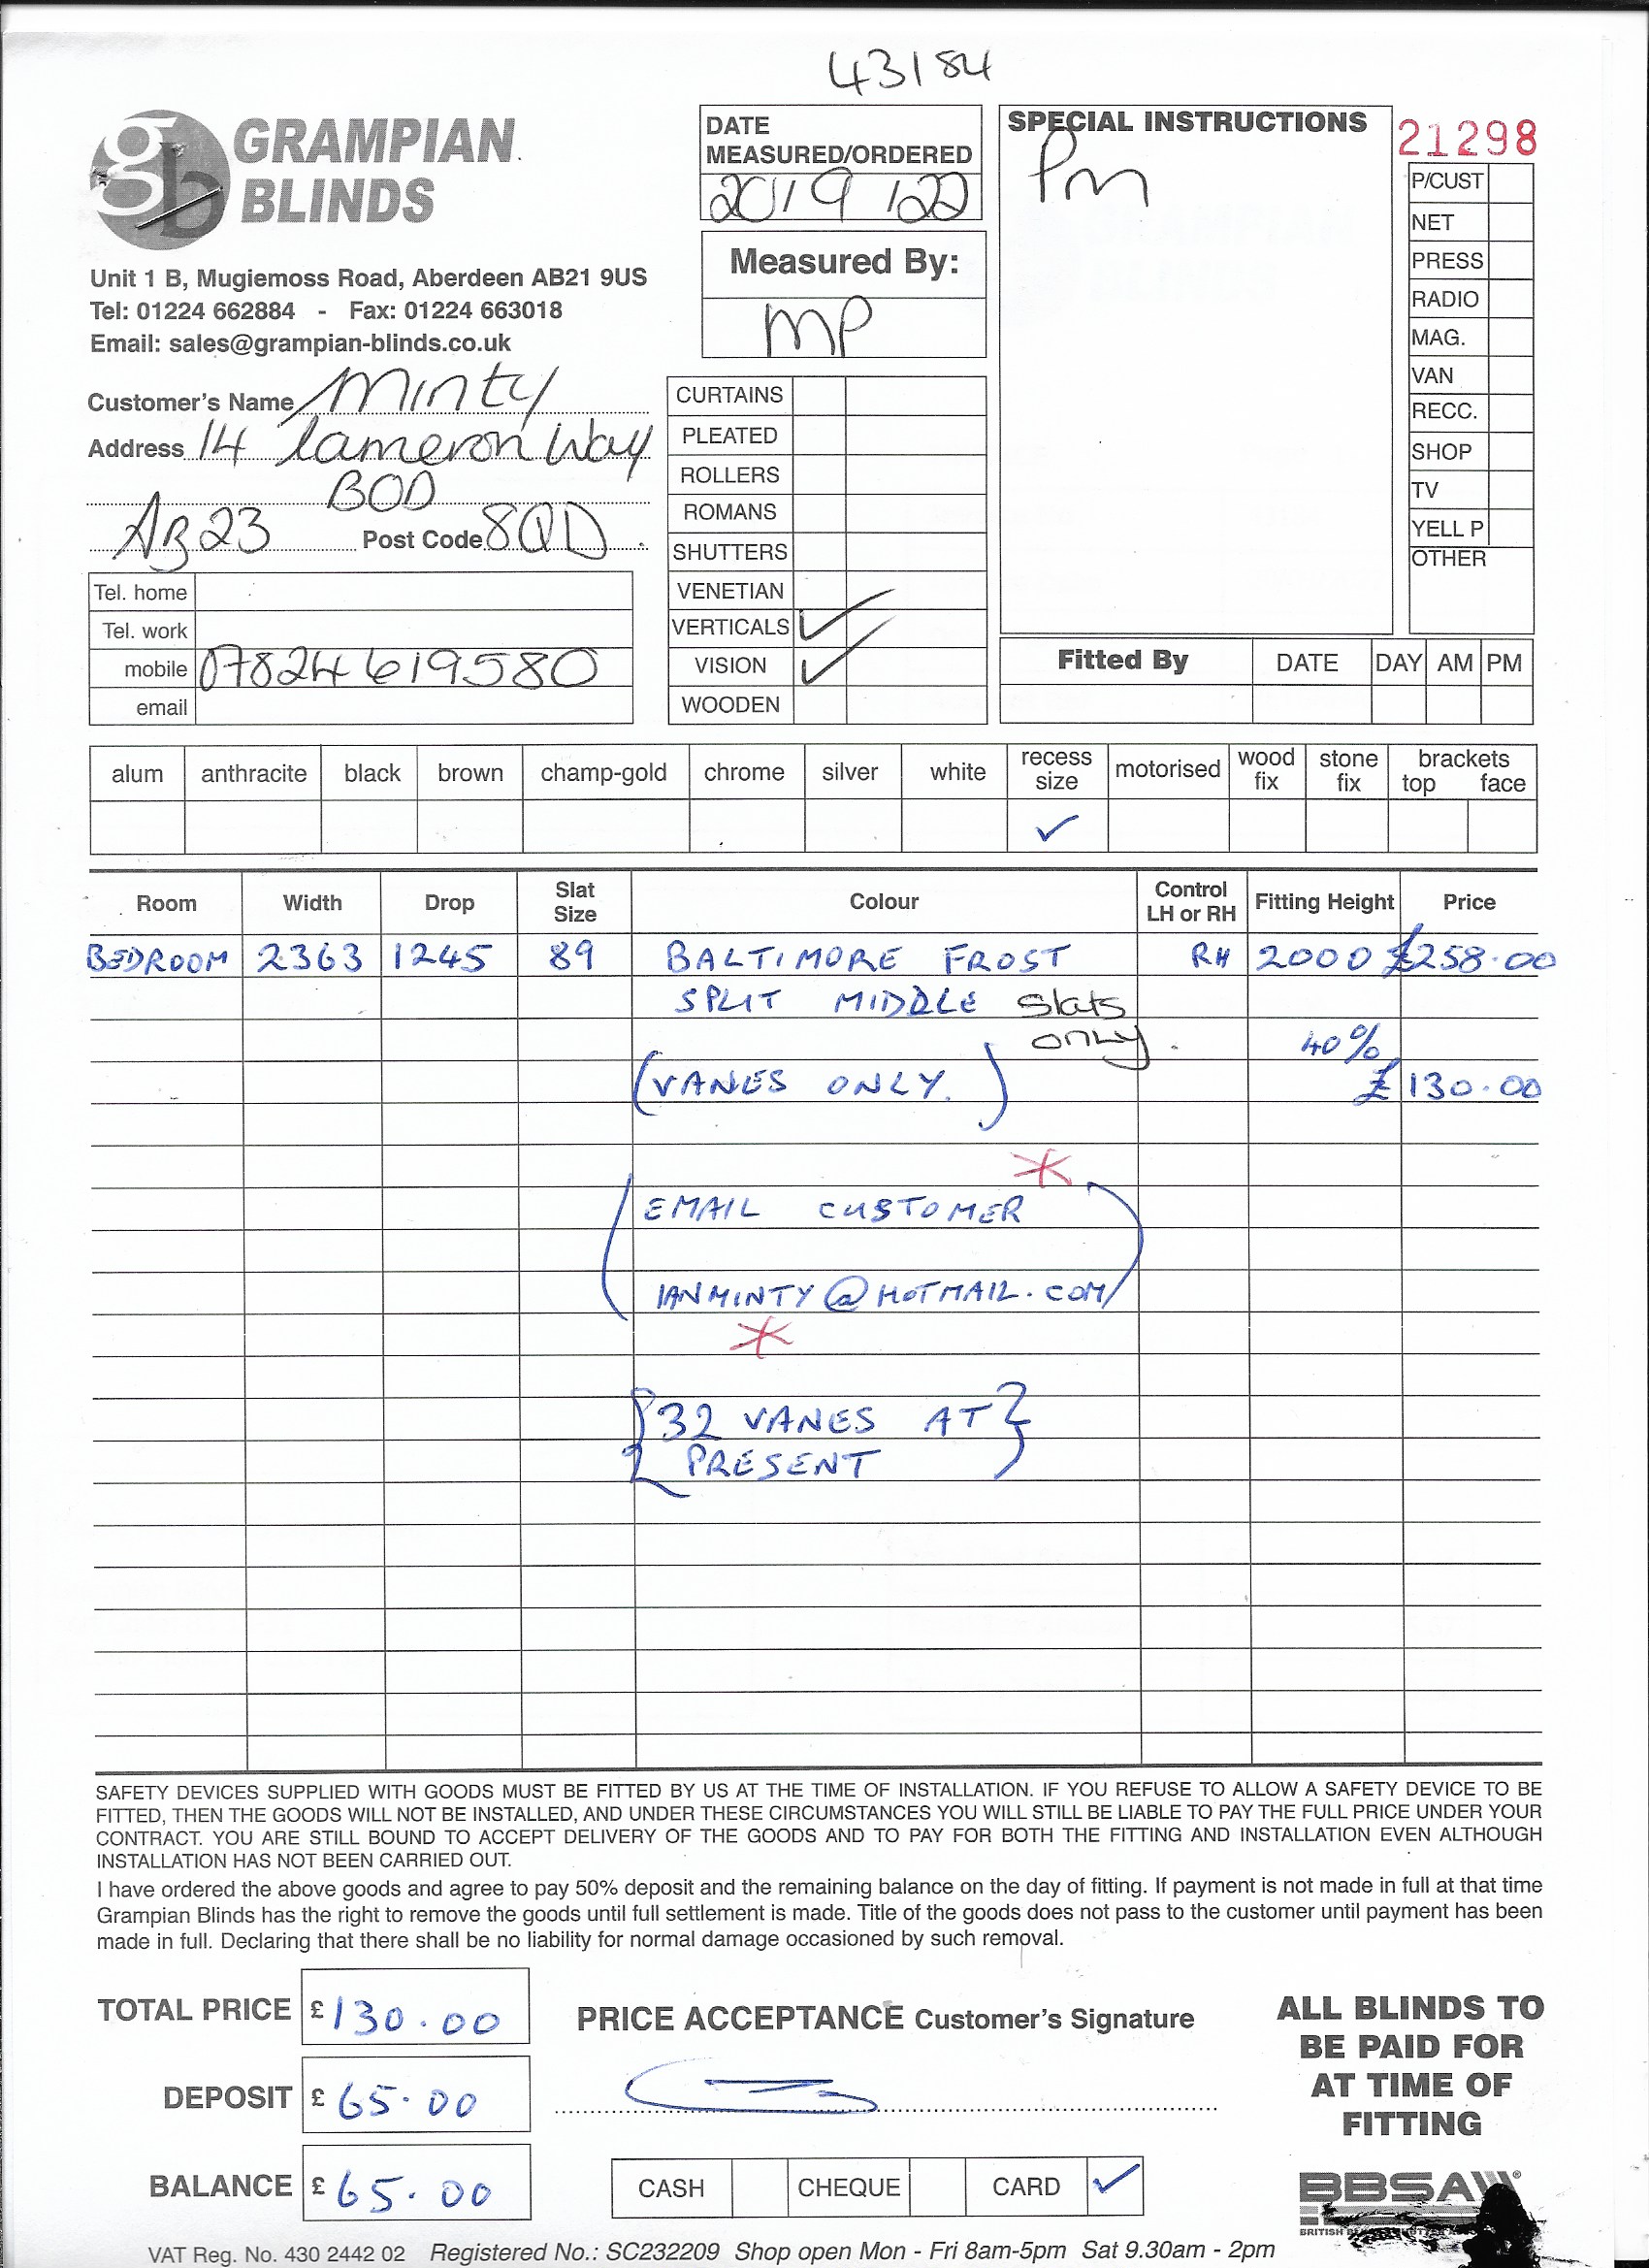 43184
GRAMPIAN
BLINDS
Unit 1 B, Mugiemoss Road, Aberdeen AB21 9US
Tel: 01224 662884 - Fax: 01224 663018
Email: sales@grampian-blinds.co.uk
Customer's Name Minty
Address 14 Cameron Way
BOD
AB23 Post Code 8QD
Tel. home
Tel. work
mobile 07824619580
email
DATE
MEASURED/ORDERED
20/9/22
Measured By:
MP
CURTAINS
PLEATED
ROLLERS
ROMANS
SHUTTERS
VENETIAN
VERTICALS ✓
VISION ✓
WOODEN
SPECIAL INSTRUCTIONS
Pm
21298
P/CUST
NET
PRESS
RADIO
MAG.
VAN
RECC.
SHOP
TV
YELL P
OTHER
Fitted By DATE DAY AM PM
alum anthracite black brown champ-gold chrome silver white recess size motorised wood fix stone fix brackets top face
✓
Room Width Drop Slat Size Colour Control LH or RH Fitting Height Price
BEDROOM 2363 1245 89 BALTIMORE FROST RH 2000 £258.00
SPLIT MIDDLE Slats
only.
40%
(VANES ONLY.) £130.00
*
(EMAIL CUSTOMER
IANMINTY@HOTMAIL.COM)
*
{32 VANES AT
PRESENT}
SAFETY DEVICES SUPPLIED WITH GOODS MUST BE FITTED BY US AT THE TIME OF INSTALLATION. IF YOU REFUSE TO ALLOW A SAFETY DEVICE TO BE
FITTED, THEN THE GOODS WILL NOT BE INSTALLED, AND UNDER THESE CIRCUMSTANCES YOU WILL STILL BE LIABLE TO PAY THE FULL PRICE UNDER YOUR
CONTRACT. YOU ARE STILL BOUND TO ACCEPT DELIVERY OF THE GOODS AND TO PAY FOR BOTH THE FITTING AND INSTALLATION EVEN ALTHOUGH
INSTALLATION HAS NOT BEEN CARRIED OUT.
I have ordered the above goods and agree to pay 50% deposit and the remaining balance on the day of fitting. If payment is not made in full at that time
Grampian Blinds has the right to remove the goods until full settlement is made. Title of the goods does not pass to the customer until payment has been
made in full. Declaring that there shall be no liability for normal damage occasioned by such removal.
TOTAL PRICE £130.00
DEPOSIT £65.00
BALANCE £65.00
PRICE ACCEPTANCE Customer's Signature
CASH CHEQUE CARD ✓
ALL BLINDS TO
BE PAID FOR
AT TIME OF
FITTING
BBSA
BRITISH
VAT Reg. No. 430 2442 02 Registered No.: SC232209 Shop open Mon - Fri 8am-5pm Sat 9.30am - 2pm